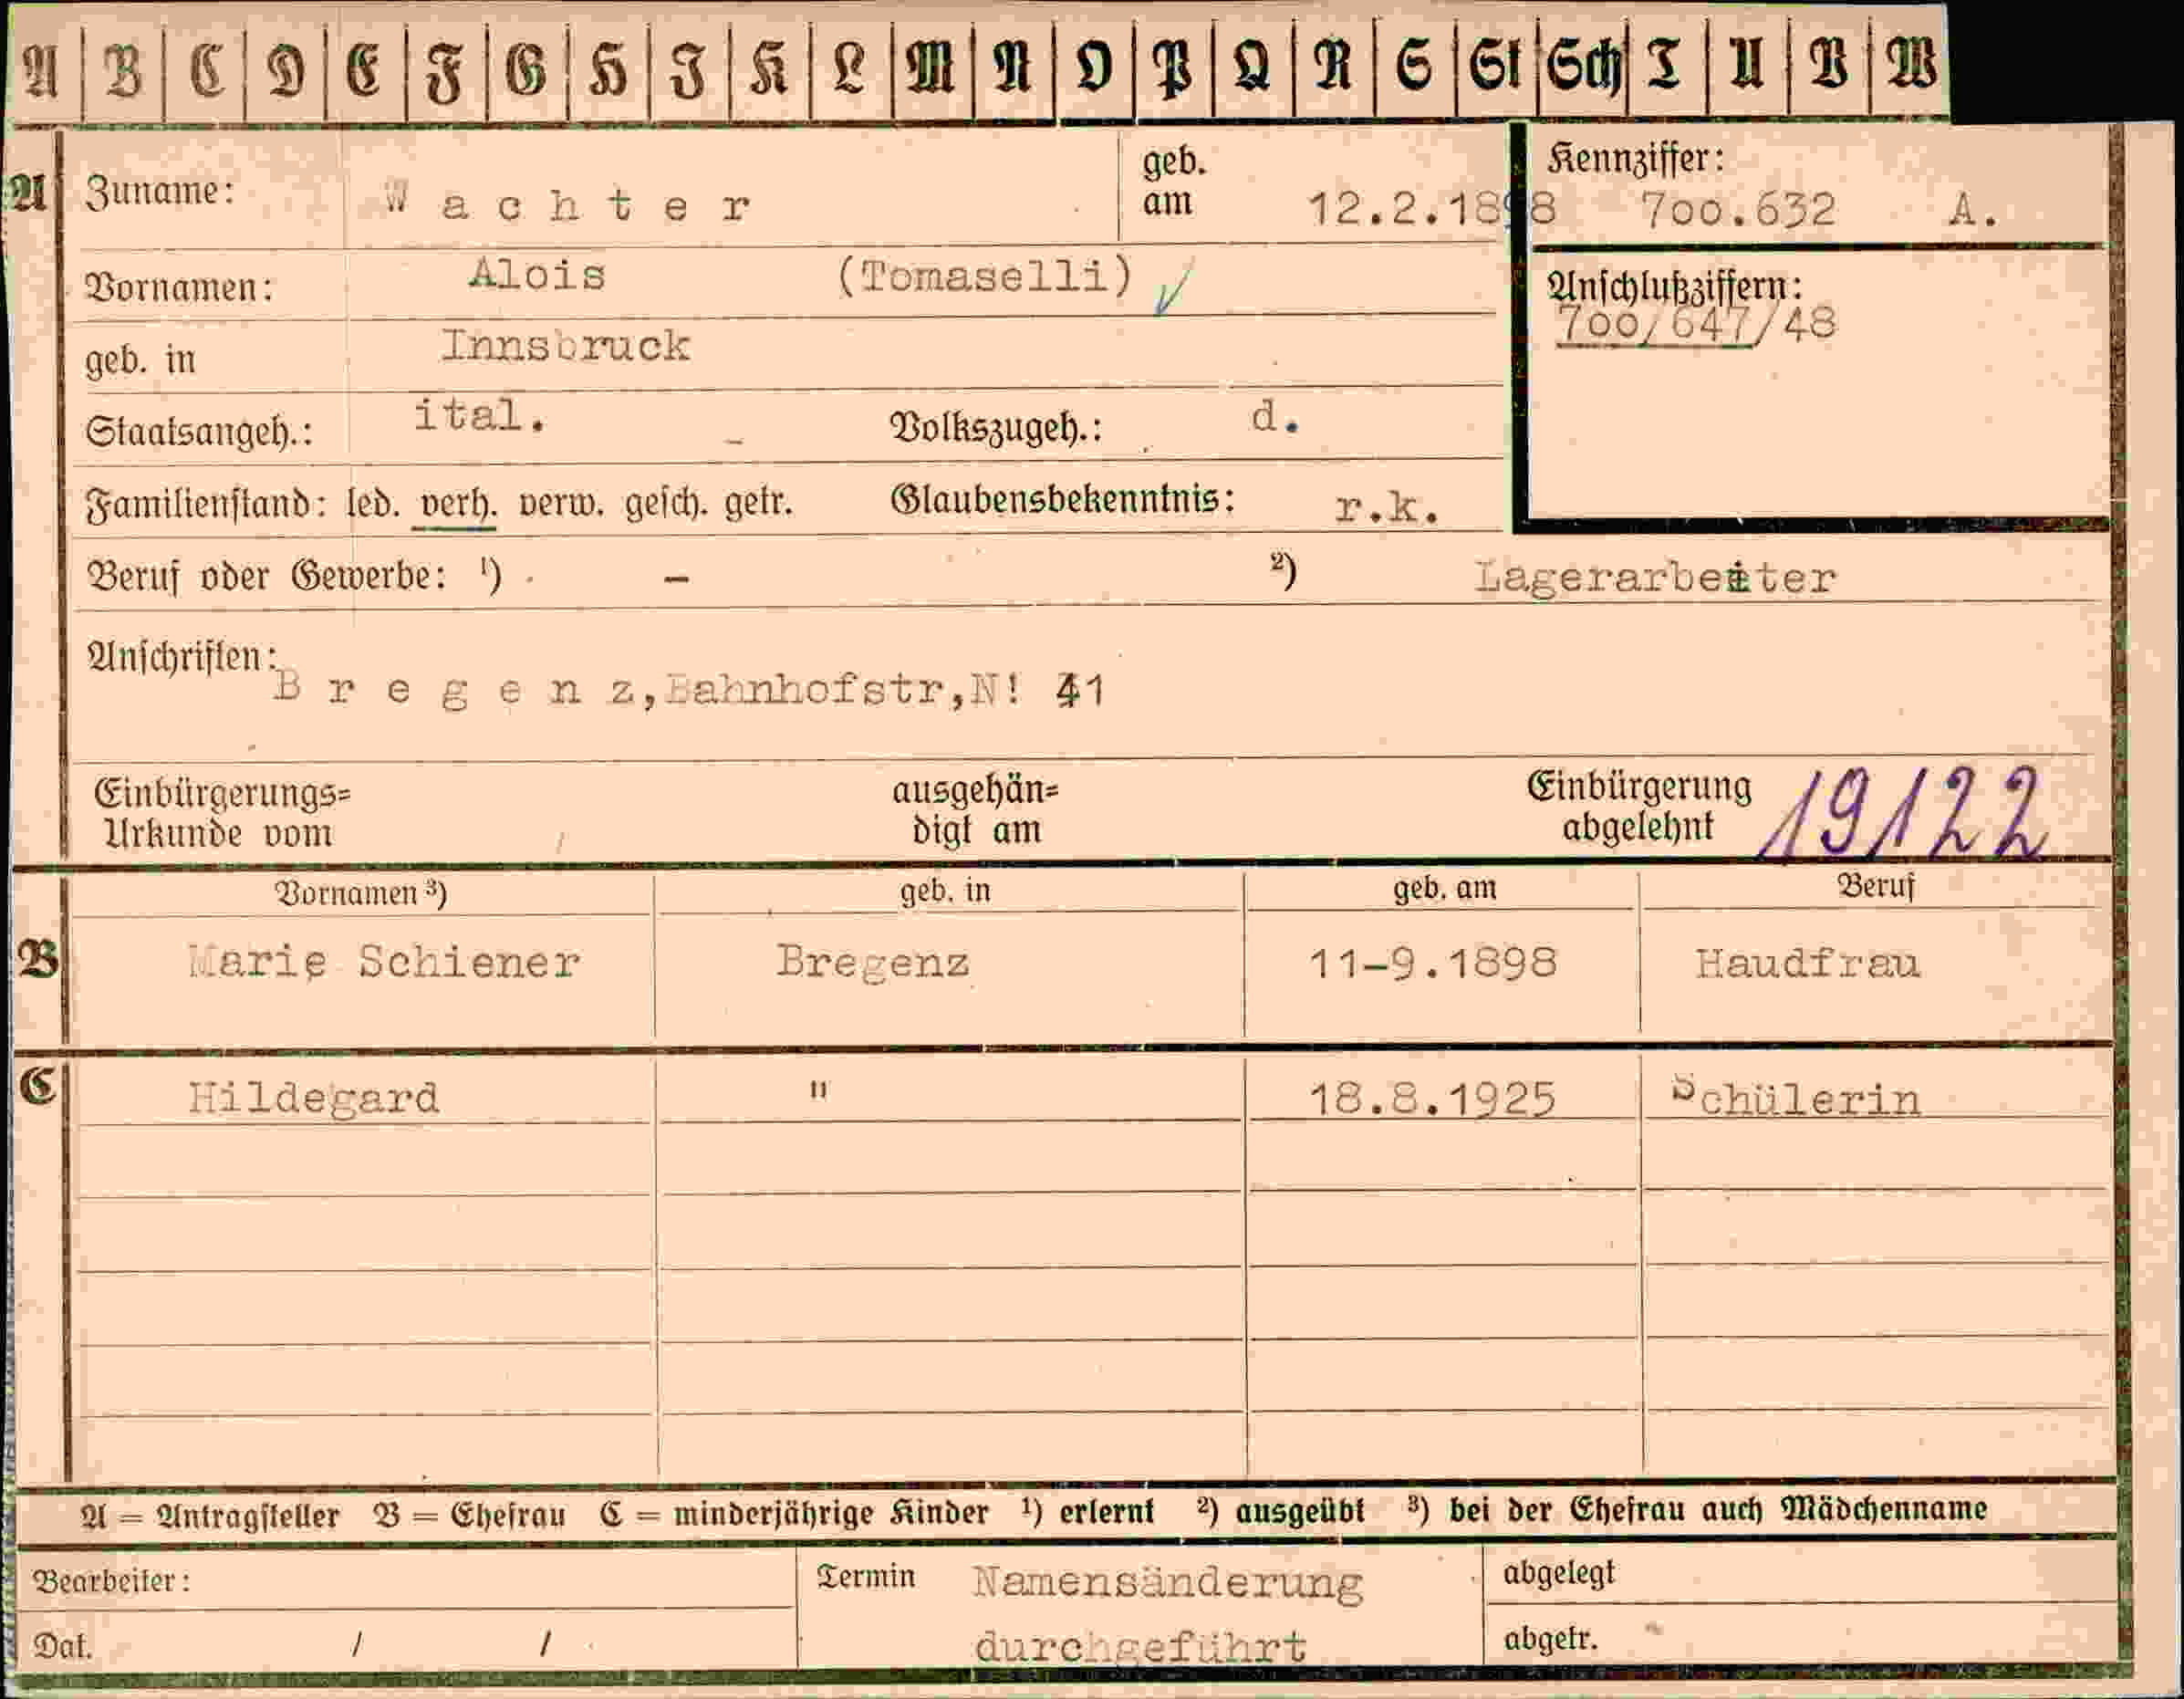 A B C D E F G H I K L M N O P Q R S St Sch T U V W
A Zuname: Wachter geb. am 12.2.1898 Kennziffer: 700.632 A.
Vornamen: Alois (Tomaselli) Anschlußziffern:
700/647/48
geb. in Innsbruck
Staatsangeh.: ital. Volkszugeh.: d.
Familienstand: led. verh. verw. gesch. getr. Glaubensbekenntnis: r.k.
Beruf oder Gewerbe: 1) - 2) Lagerarbeiter
Anschriften:
Bregenz,Bahnhofstr,N! 41
Einbürgerungs= ausgehän= Einbürgerung 19122
Urkunde vom digt am abgelehnt
Vornamen 3) geb. in geb. am Beruf
B Marie Schiener Bregenz 11-9.1898 Haudfrau
C Hildegard " 18.8.1925 Schülerin
A = Antragsteller B = Ehefrau C = minderjährige Kinder 1) erlernt 2) ausgeübt 3) bei der Ehefrau auch Mädchenname
Bearbeiter: Termin Namensänderung abgelegt
Dat. / / durchgeführt abgetr.